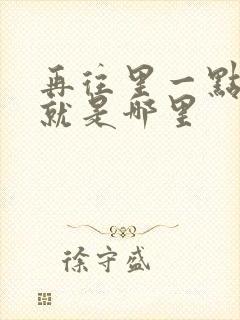 再往里一點
就是哪里
徐守盛